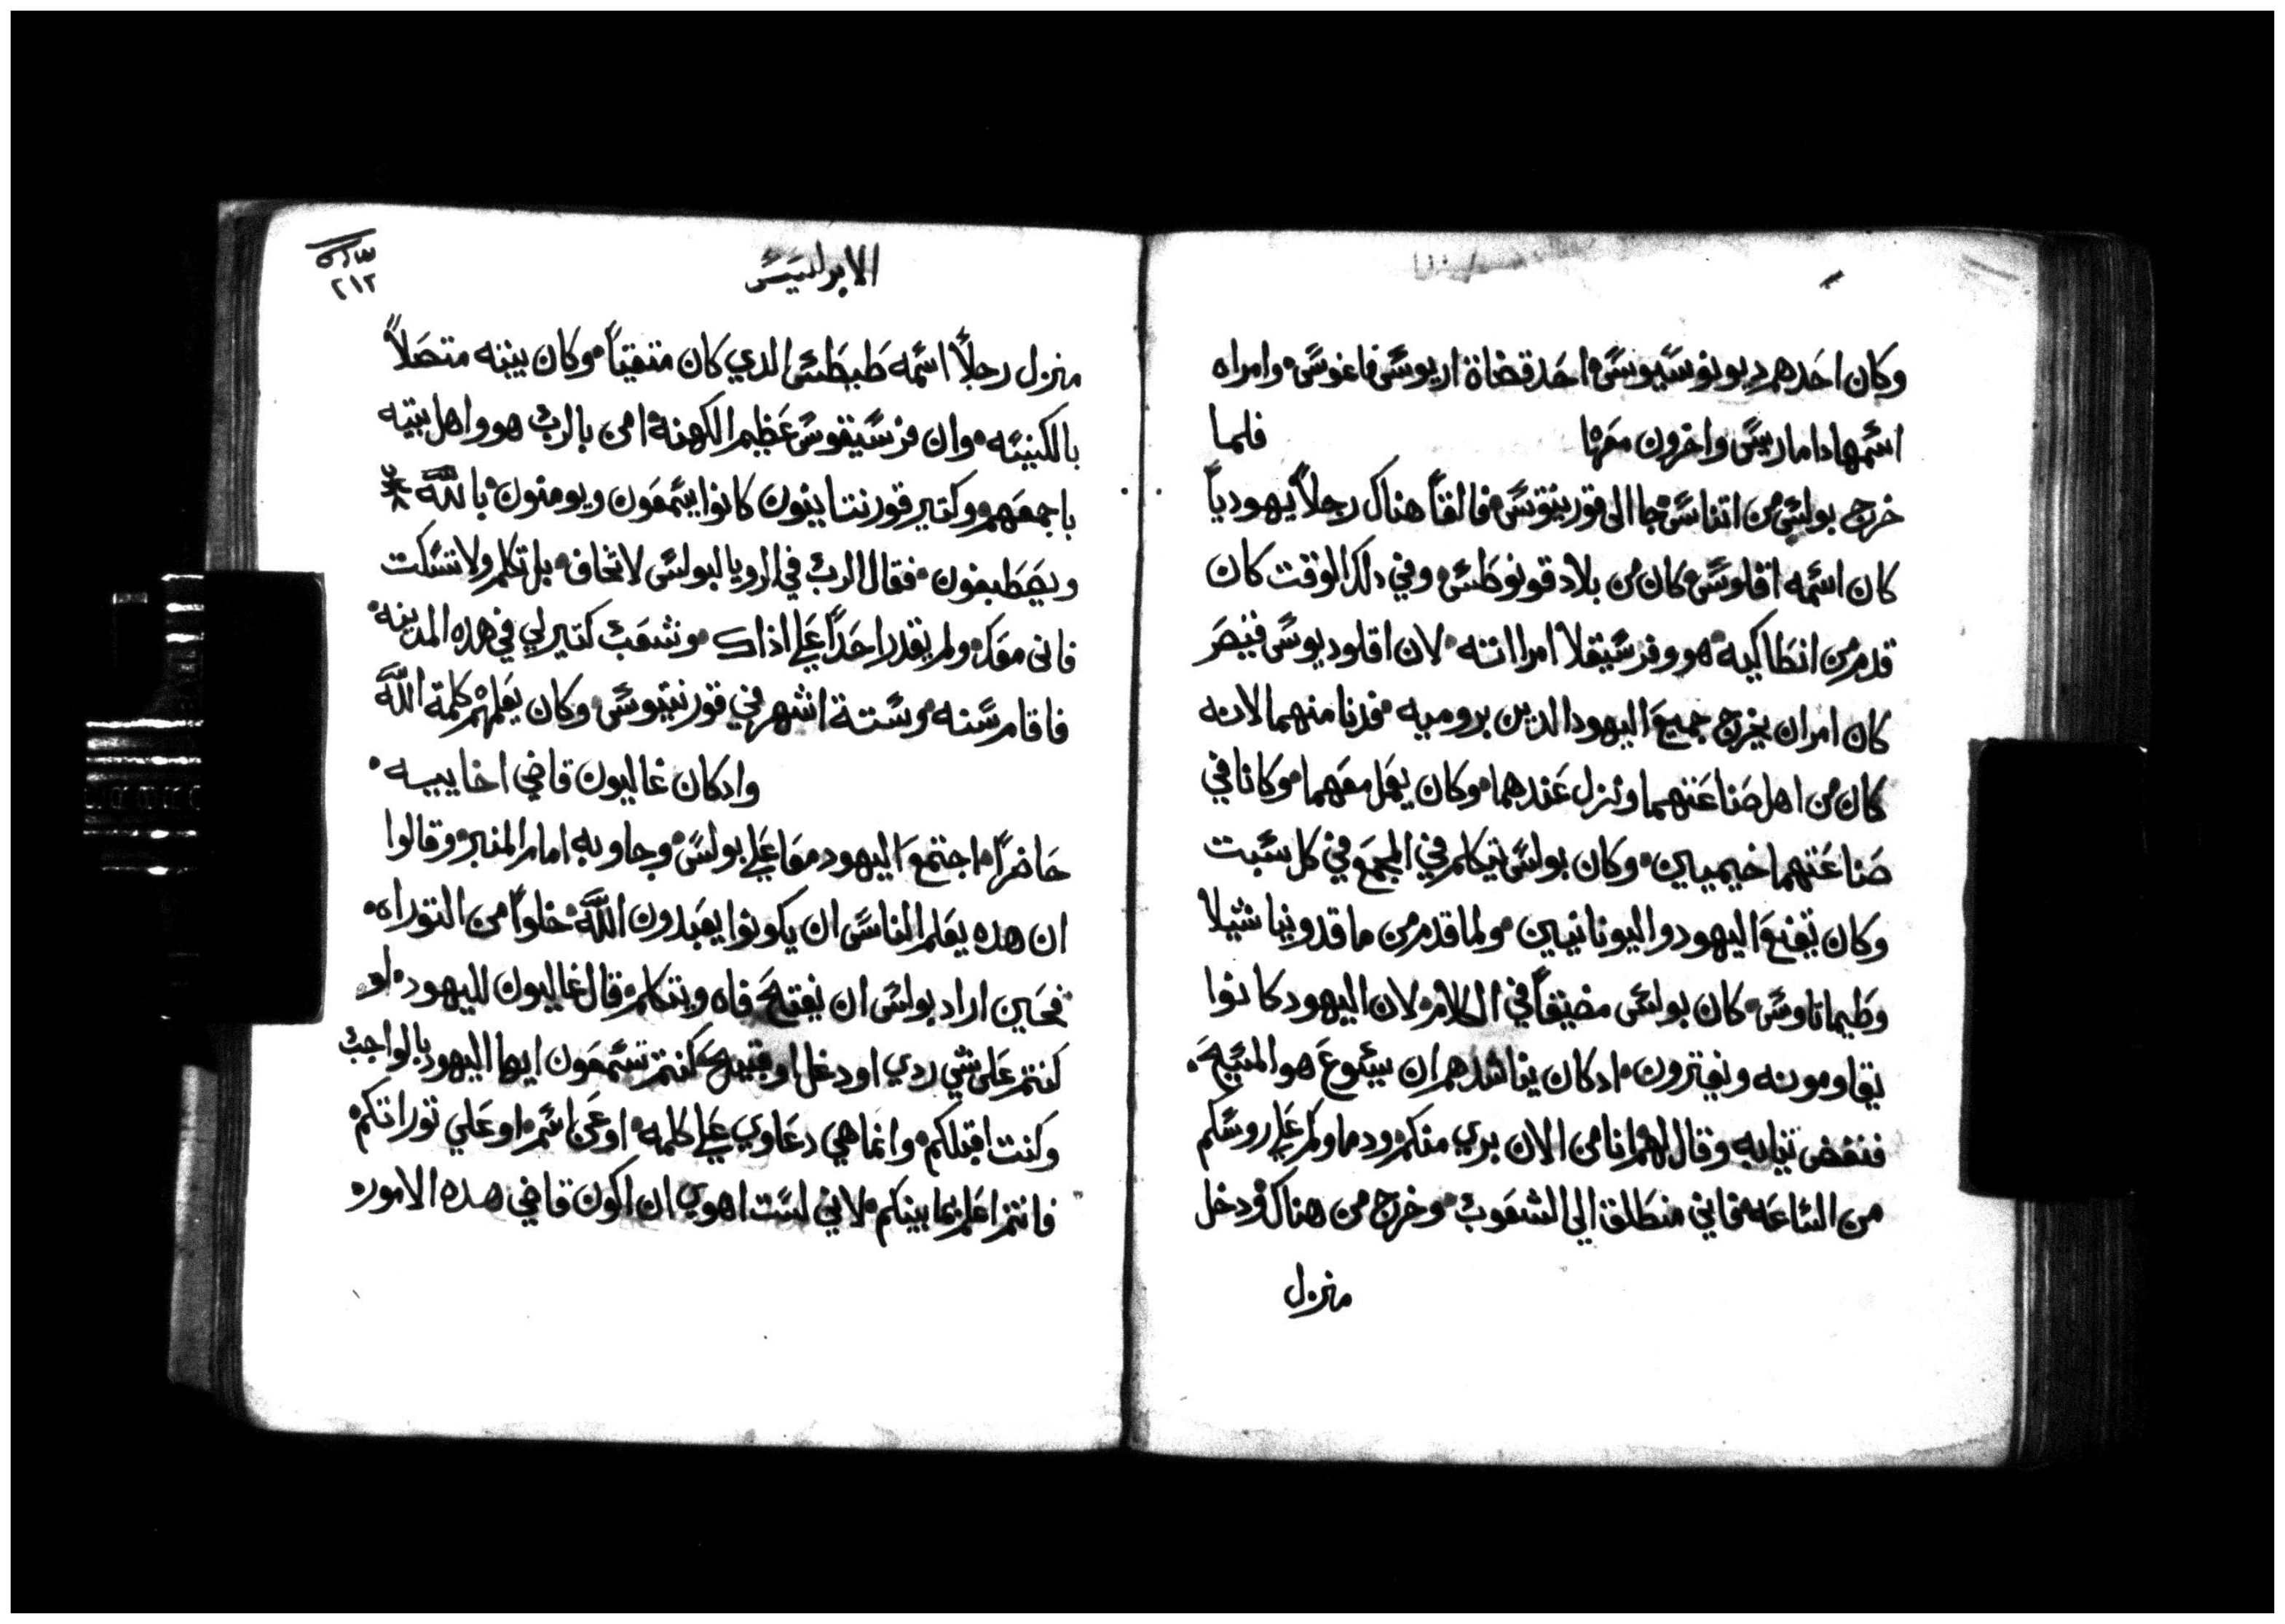 وكان احدهم ديونوسيوس احد قضاة اريوس فاغوس وامراه
اسمها داماريس واخرون معها فلما
خرج بولس من اتناس جا الى قورنتوس فالقا هناك رجلاً يهودياً
كان اسمه اقلوس كان من بلاد قونوطس وفي دلك الوقت كان
قدم من انطاكيه هو وفرسقلا امراته لان اقلوديوس قيصر
كان امر ان يخرج جميع اليهود الدين بروميه فدنا منهما لانه
كان من اهل صناعتهما ونزل عندهما وكان يعمل معهما وكانا في
صناعتهما خيميين وكان بولس يتكلم في المجمع في كل سبت
وكان يقنع اليهود واليونانيين ولما قدم من ماقدونيا شيلا
وطيماتاوس كان بولس مضيقاً في الكلام لان اليهود كانوا
يقاومونه ويفترون ادكان يناشدهم ان يسوع هو المسيح
فنفض تيابه وقال لهم انا من الان بري منكم ودماوكم على روسكم
من الساعه فاني منطلق الي الشعوب وخرج من هناك ودخل
منزل
الابركسيس
٢١٢
منزل رجلاً اسمه طيطس الدي كان متقياً وكان بيته متصلاً
بالكنيسه وان فرسيقوس عظيم الكهنة امن بالرب هو واهل بيته
باجمعهم وكتير قورنتانيون كانوا يسمعون ويومنون بالله
ويصطبغون فقال الرب في الرويا لبولس لا تخاف بل تكلم ولا تسكت
فانى معك ولم يقدر احداً على اداك وشعب كتير لي في هده المدينه
فاقام سنه وستة اشهر في قورنتيوس وكان يعلمهم كلمة الله
وادكان غاليون قاضي اخاييه
حاضراً اجتمع اليهود معاً على بولس وجاو به امام المنبر وقالوا
ان هده يعلم الناس ان يكونوا يعبدون الله خلواً من التوراه
فحين اراد بولس ان يفتح فاه ويتكلم قال غاليون لليهود لو
كنتم على شي ردي او دغل او قبيح كنتم تسمعون ايها اليهود بالواجب
وكنت اقبلكم وانما هي دعاوي على كلمه او عن اسم او علي توراتكم
فانتم اعلم بما بينكم لاني لست اهوي ان اكون قاضي هده الامور